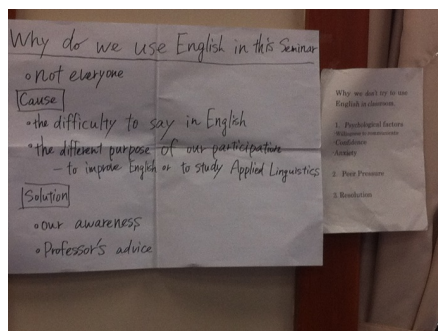 Why do we use English in this Seminar
• not everyone
Cause
• the difficulty to say in English
• the different purpose of our participative
– to improve English or to study Applied Linguistics
Solution
• our awareness
• Professor's advice
Why we don't try to use
English in classroom.
1. Psychological factors
Willingness to communicate
Confidence
Anxiety
2. Peer Pressure
3. Resolution